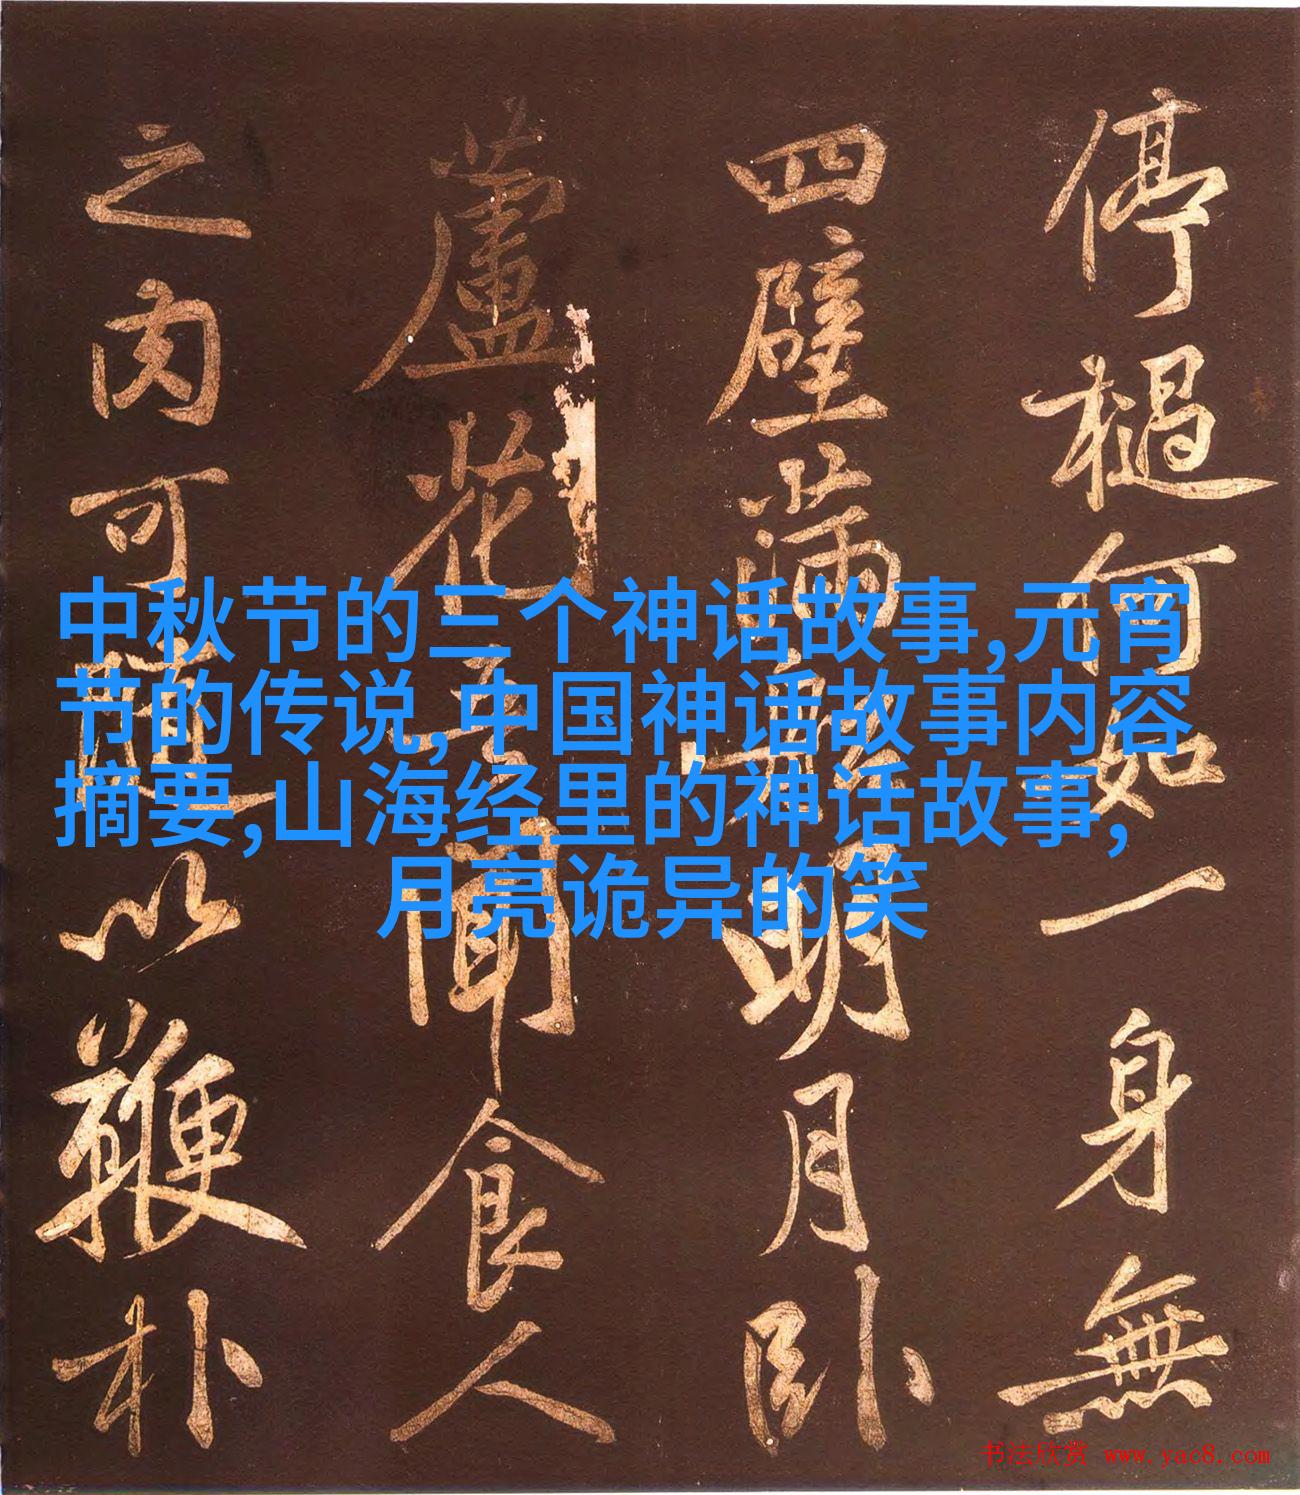 中秋节的三个神话故事,元宵
节的传说,中国神话故事内容
摘要,山海经里的神话故事,
月亮诡异的笑
停檛何如一身無
四壁滿船明月卧
蘆花吾聞食人
之肉可隨以鞭朴
书法欣赏 www.yac8.com